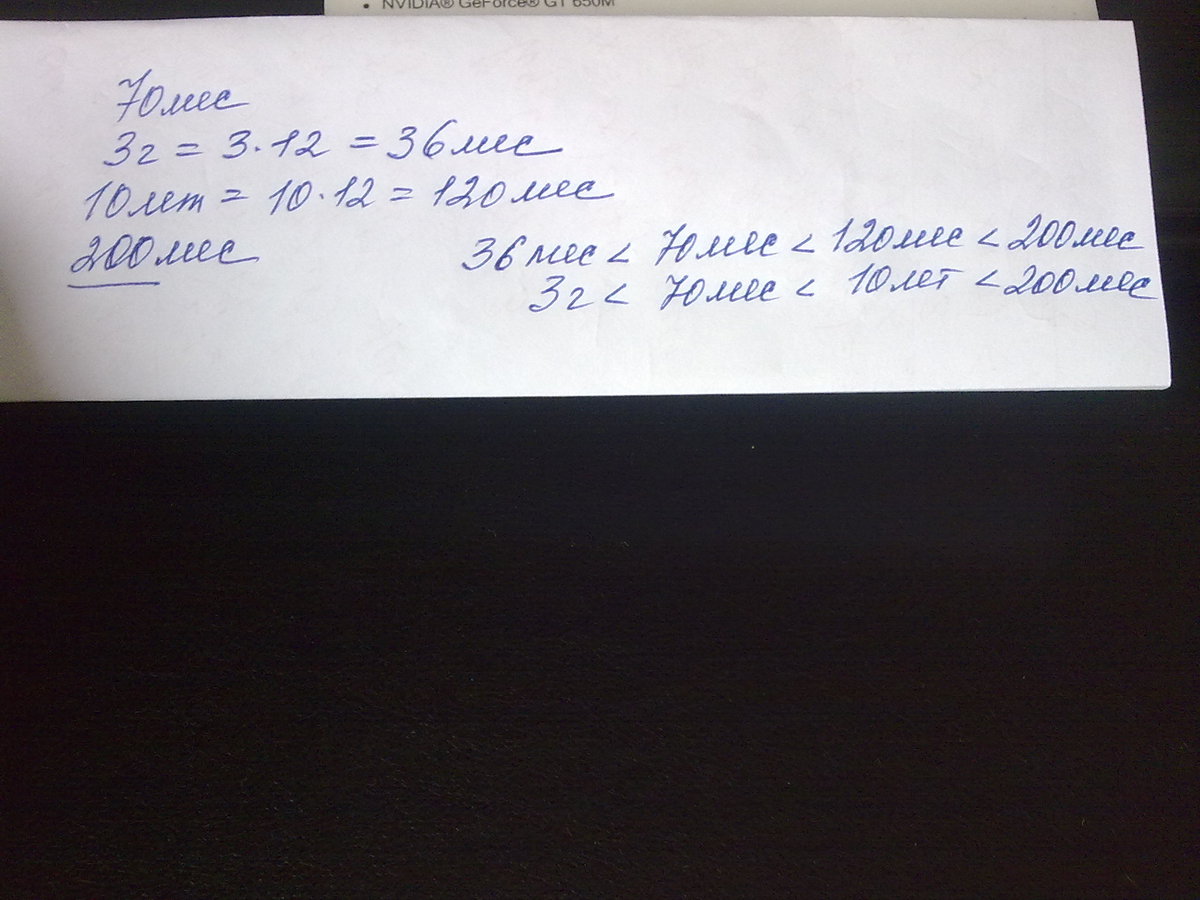 • NVIDIA® GeForce® GT 650M
70мес
3г = 3·12 = 36мес
10лет = 10·12 = 120мес
200мес
36мес < 70мес < 120мес < 200мес
3г < 70мес < 10лет < 200мес